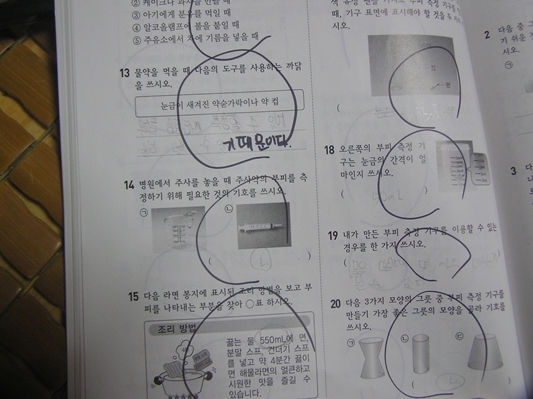 ② 케이크나 과자를 만들 때
③ 아기에게 분유를 먹일 때
④ 알코올램프에 불을 붙일 때
⑤ 주유소에서 차에 기름을 넣을 때
13 물약을 먹을 때 다음의 도구를 사용하는 까닭
을 쓰시오.
눈금이 새겨진 약숟가락이나 약 컵
기 때문이다.
14 병원에서 주사를 놓을 때 주사약의 부피를 측
정하기 위해 필요한 것의 기호를 쓰시오.
㉠
㉡
( )
15 다음 라면 봉지에 표시된 조리 방법을 보고 부
피를 나타내는 부분을 찾아 ○표 하시오.
조리 방법
끓는 물 550mL에 면,
분말 스프, 건더기 스프
를 넣고 약 4분간 끓이
면 해물라면의 얼큰하고
시원한 맛을 즐길 수
있습니다.
때, 기구 표면에 표시해야 할 것을
시오.
( )
18 오른쪽의 부피 측정 기
구는 눈금의 간격이 얼
마인지 쓰시오.
( )
19 내가 만든 부피 측정 기구를 이용할 수 있는
경우를 한 가지 쓰시오.
( )
20 다음 3가지 모양의 그릇 중 부피 측정 기구를
만들기 가장 좋은 그릇의 모양을 골라 기호를
쓰시오.
㉠
㉡
㉢
2
다음 중
기 쉬운
㉠
3
다